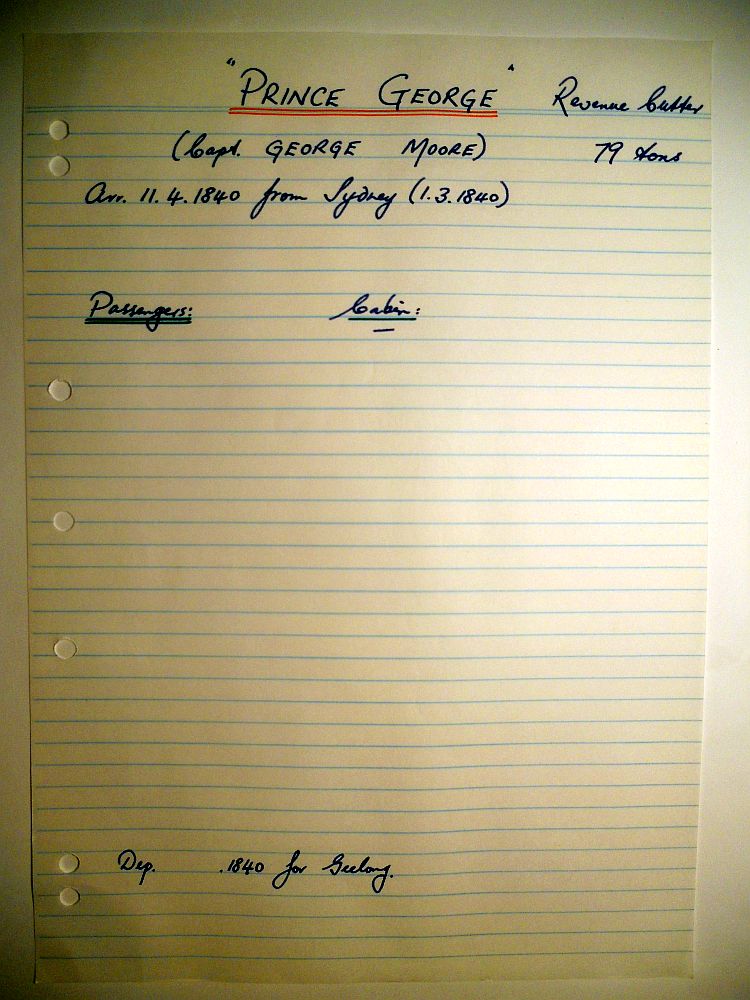 "PRINCE GEORGE" Revenue Cutter
(Capt. GEORGE MOORE) 79 tons
Arr. 11.4.1840 from Sydney (1.3.1840)
Passengers: Cabin:
Dep. .1840 for Geelong.